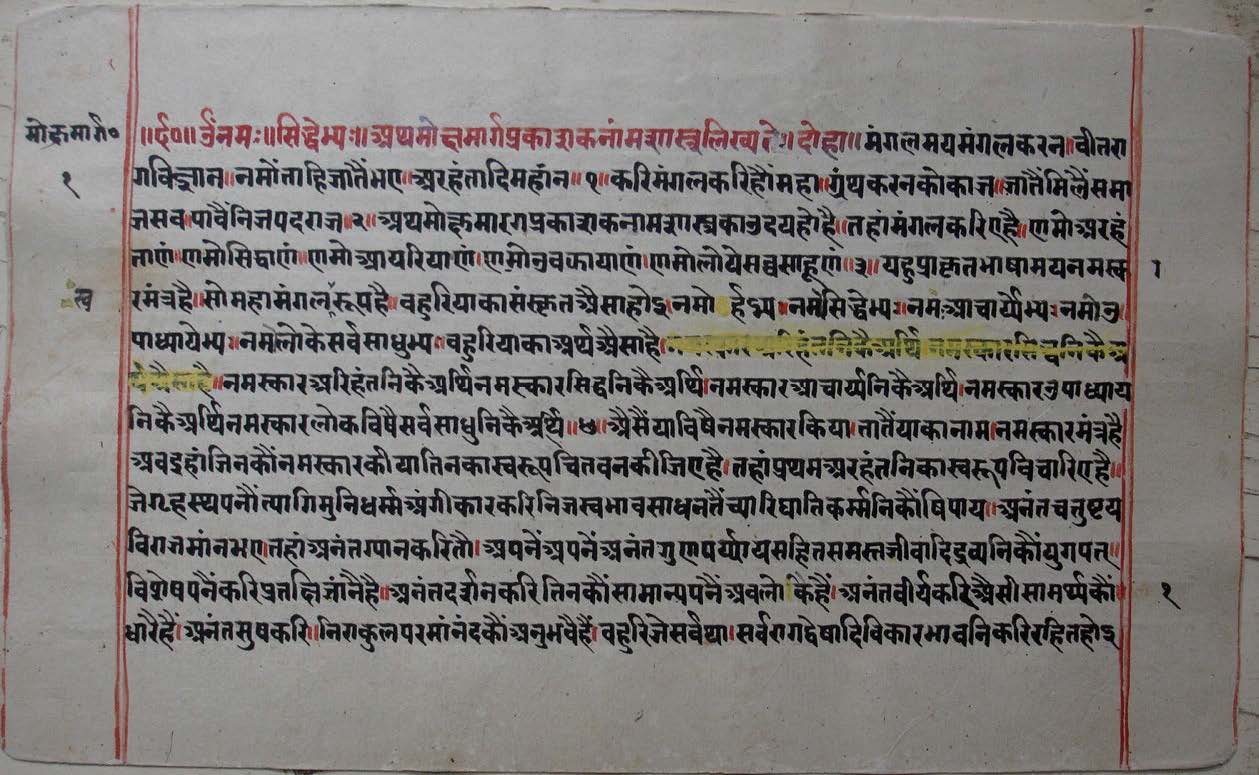 मोक्षमार्ग०
॥ॐनमः॥सिद्धेभ्यः॥अथमोक्षमार्गप्रकाशकनांमशास्त्रलिख्यते॥दोहा॥मंगलमयमंगलकरन।वीतरा
१
गविज्ञान॥नमोंताहिजातैंभए॥अरहंतादिमहांन॥१॥करिमंगलकरिहौंमहा।ग्रंथकरनकोकाज॥जातैंमिलैंसमा
जसव॥पावैंनिजपदराज॥२॥अथमोक्षमारगप्रकाशकनामशास्त्रकाउदयहोहै॥तहांमंगलकरिएहै॥णमोअरहं
ताणं॥णमोसिद्धाणं॥णमोआयरियाणं।णमोउवझायाणं।णमोलोयेसव्वसाहूणं॥३॥यहुप्राकृतभाषामयनमस्का
रमंत्रहै॥सोमहामंगलरूपहै॥वहुरियाकासंस्कृतअैसाहोइ॥नमोर्हद्भ्यः॥नमःसिद्धेभ्यः॥नमःआचार्य्येभ्यः॥नमोउ
पाध्यायेभ्यः॥नमोलोकेसर्वसाधुभ्यः॥वहुरियाकाअर्थअैसाहै॥नमस्कारअरिहंतनिकैअर्थिनमस्कारसिद्धनिकैअ
र्थअैसाहै॥नमस्कारअरिहंतनिकैअर्थिनमस्कारसिद्धनिकैअर्थि।नमस्कारआचार्य्यनिकैअर्थि।नमस्कारउपाध्याय
निकैअर्थिनमस्कारलोकविषैसर्वसाधुनिकैअर्थि॥४॥अैसैंयाविषैनमस्कारकिया।तातैंयाकानाम।नमस्कारमंत्रहै
अवइहांजिनकौंनमस्कारकीयातिनकास्वरूपचितवनकीजिएहै।तहांप्रथमअरहंतनिकास्वरूपविचारिएहै॥
जेगृहस्थपनौंत्यागिमुनिधर्म्मअंगीकारकरिनिजस्वभावसाधनतैंच्यारिघातिकर्म्मनिकौंषिपाय॥अनंतचतुष्टय
विराजमांनभए।तहांअनंतग्यानकरितौ।अपनेंअपनेंअनंतगुणपर्य्यायसहितसमस्तजीवादिद्रव्यनिकौंयुगपत्॥
विशेषपनैंकरिप्रतक्षिजांनैहै॥अनंतदर्शनकरितिनकौंसामान्यपनैंअवलोकैहैं।अनंतवीर्यकरिअैसीसामर्थ्यकौं॥
१
धारैहैं।अनंतसुषकरि।निराकुलपरमांनंदकौंअनुभवैहैं।वहुरिजेसर्वथा।सर्वरागद्वेषादिविकारभावनिकरिरहितहोइ